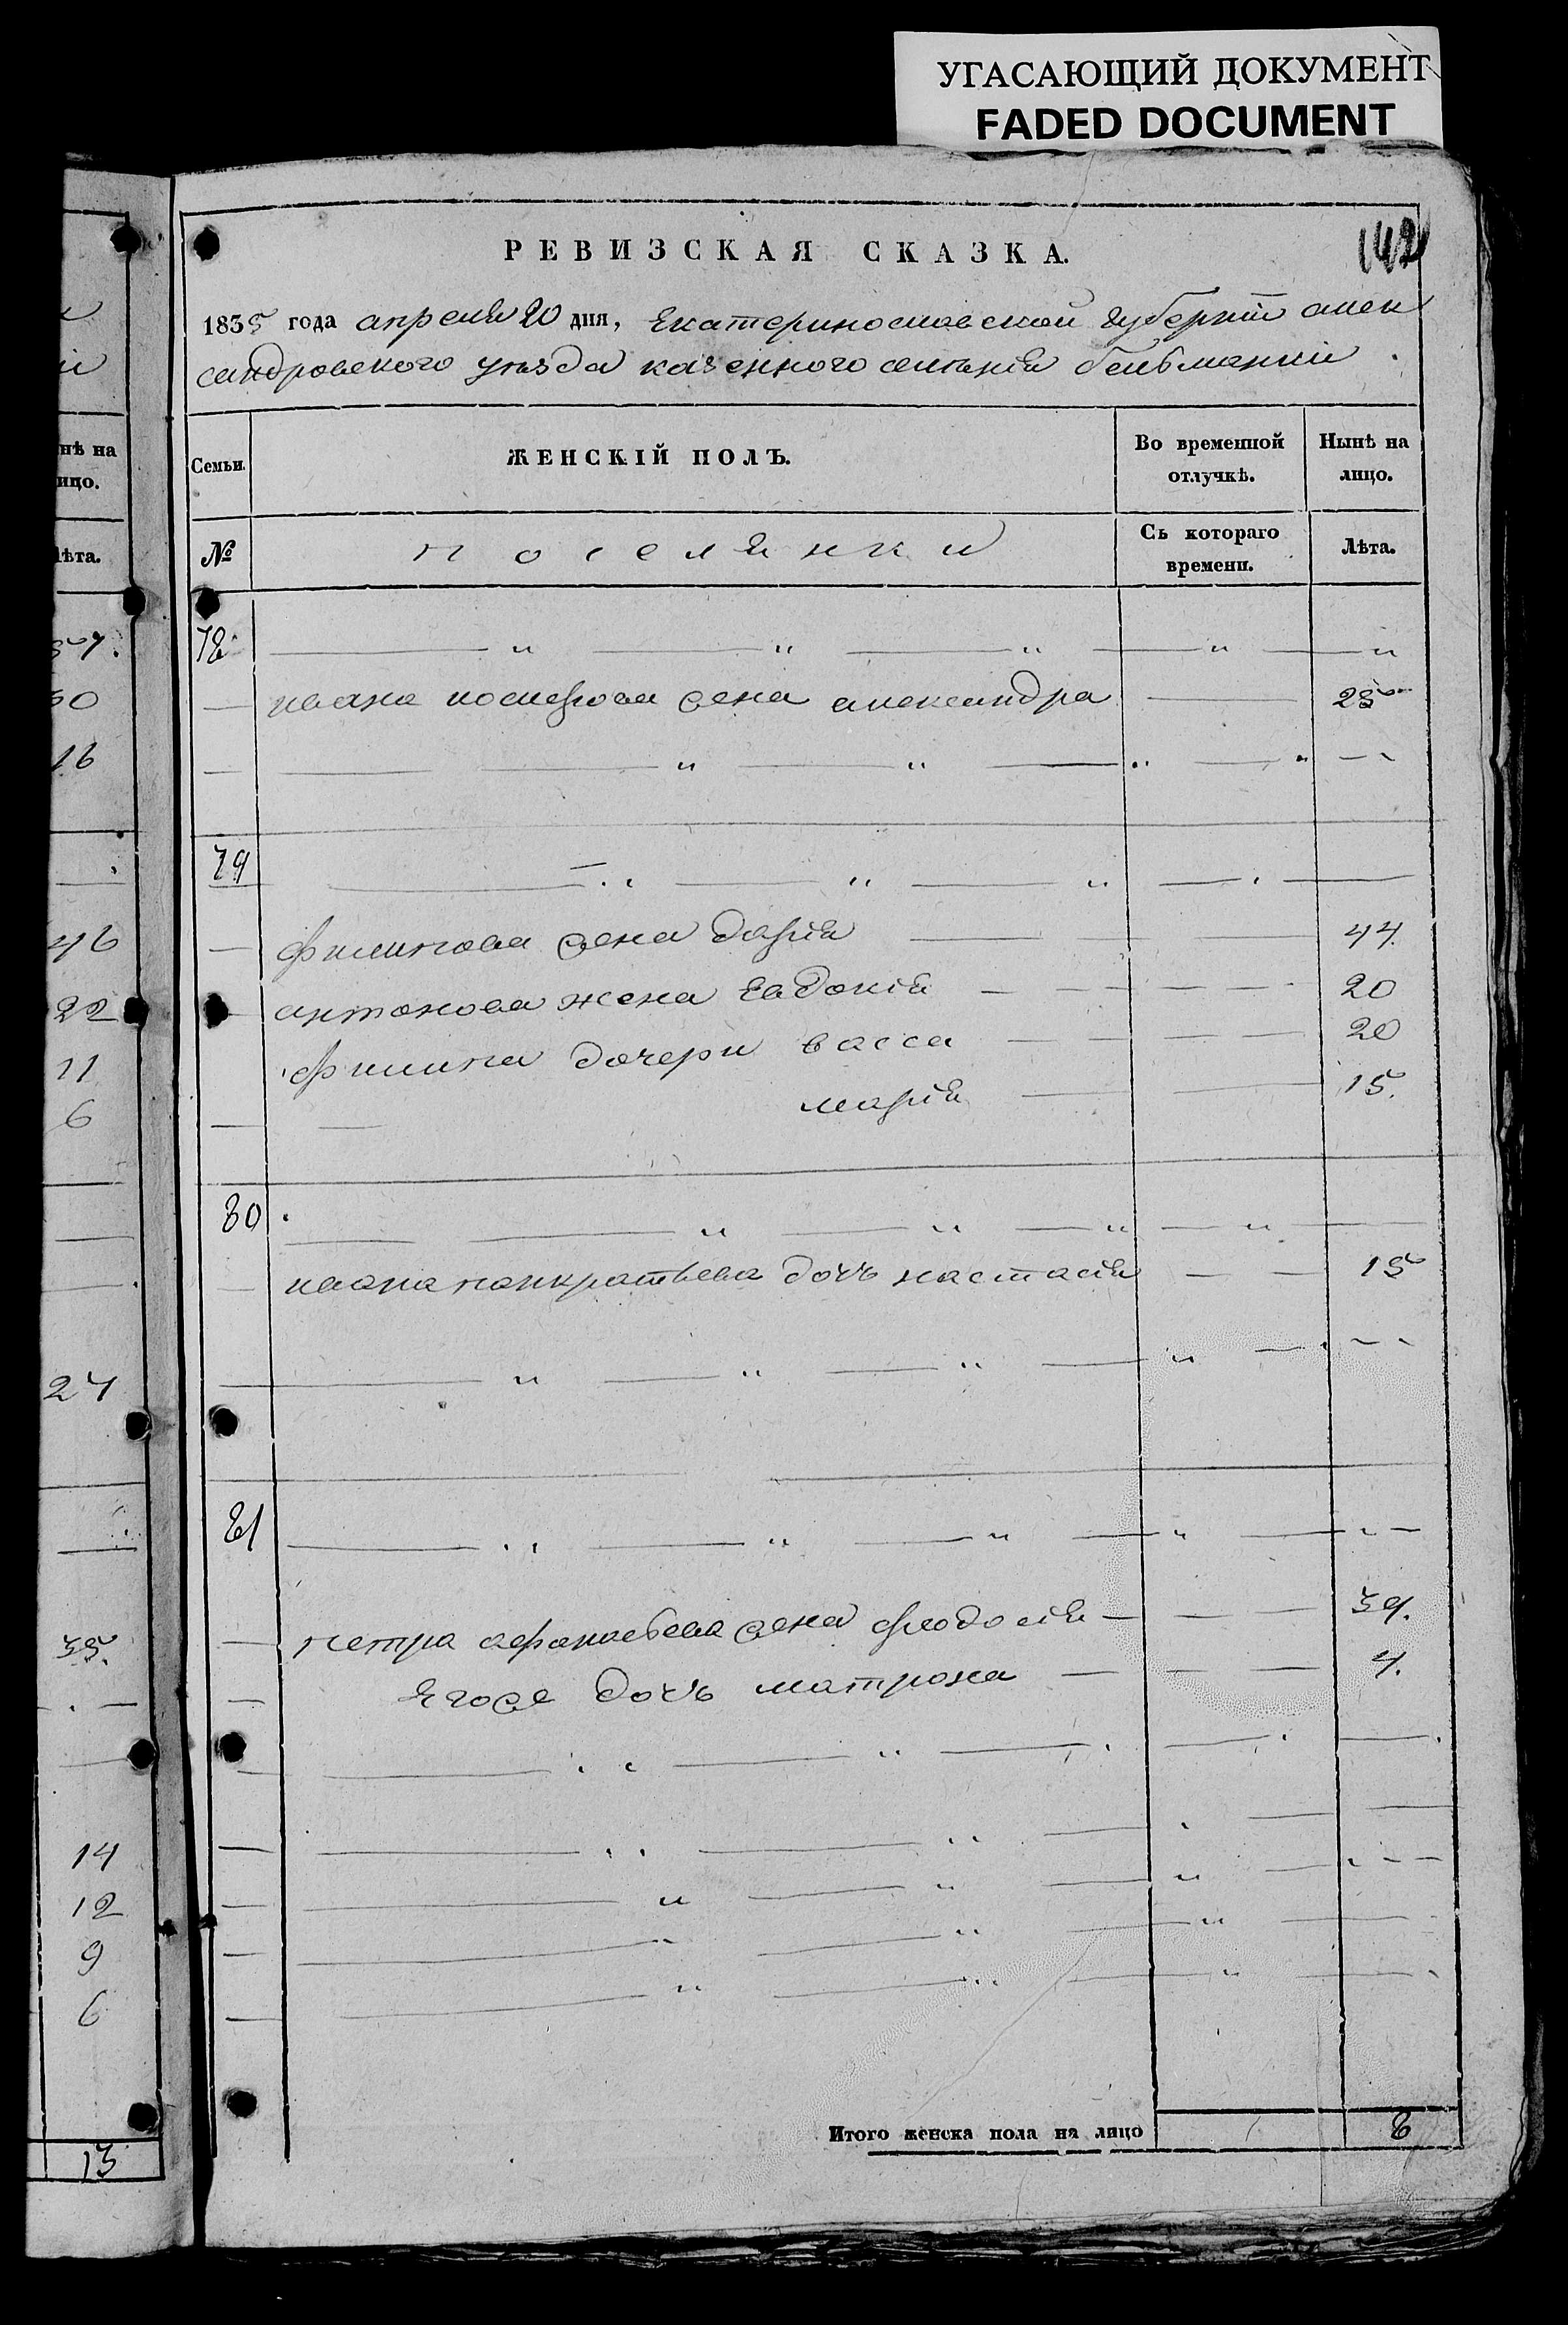 УГАСАЮЩИЙ ДОКУМЕНТ
FADED DOCUMENT
РЕВИЗСКАЯ СКАЗКА.
142
1835 года апреля 20 дня, Екатеринославской губернїи алек
сандровского уѣзда казенного селѣнїя бельманки
Семьи.
ЖЕНСКІЙ ПОЛЪ.
Во временной отлучкѣ.
Нынѣ на лицо.
№
поселянки
Съ котораго времени.
Лѣта.
78
ивана жена александра 25
79
филипова жена дарїя 44.
антонова жена Евдокїя 20
филипа дочери васса 20
марїя 15.
80
ивана панкратьева дочь настасїя 15
81
петра афанасьева жена феодосїя 39.
Егоже дочь матрона 4.
Итого женска пола на лицо 8
нѣ на
ицо.
ѣта.
50
16
46
22
11
6
24
35.
14
12
9
6
13